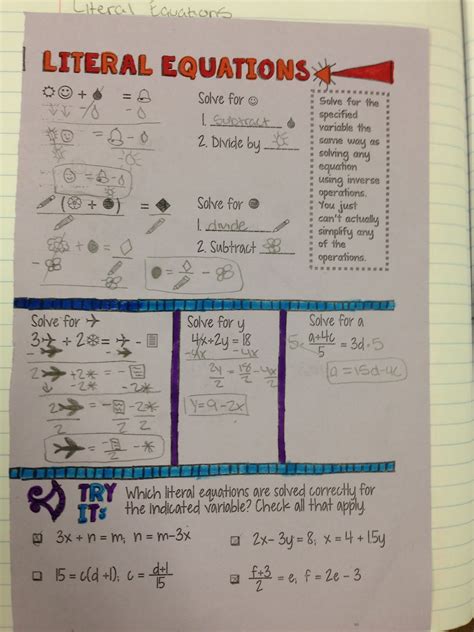 Literal Equations
LITERAL EQUATIONS
Solve for ☺
1. Subtract
2. Divide by
Solve for the
specified
variable the
same way as
solving any
equation
using inverse
operations.
You just
can't actually
simplify any
of the
operations.
Solve for
1. divide
2. Subtract
Solve for ✈
3✈ + 2❄ = ✈ -
2✈ + 2* = -
2✈ = - - 2*
2 2 2
✈ = - - *
2
Solve for y
4x+2y = 18
-4x -4x
2y = 18 - 4x
2 2 2
y = 9 - 2x
Solve for a
5 · a+4c = 3d · 5
5
a = 15d-4c
TRY IT: Which literal equations are solved correctly for
the indicated variable? Check all that apply.
3x + n = m; n = m-3x
2x - 3y = 8; x = 4 + 1.5y
15 = c(d + 1); c = d+1/15
f+3/2 = e; f = 2e - 3